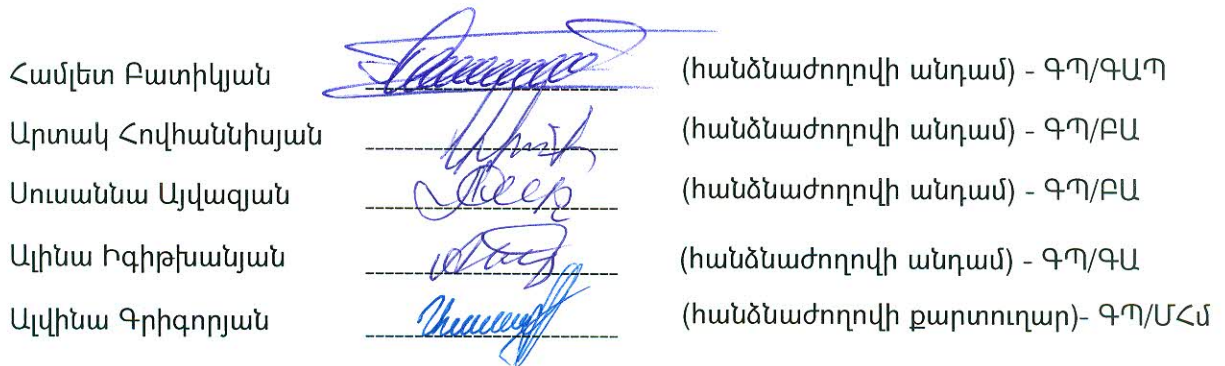 Համլետ Բատիկյան (հանձնաժողովի անդամ) - ԳՊ/ԳԱՊ
Արտակ Հովհաննիսյան (հանձնաժողովի անդամ) - ԳՊ/ԲԱ
Սուսաննա Այվազյան (հանձնաժողովի անդամ) - ԳՊ/ԲԱ
Ալինա Իգիթխանյան (հանձնաժողովի անդամ) - ԳՊ/ԳԱ
Ալվինա Գրիգորյան (հանձնաժողովի քարտուղար)- ԳՊ/ՄՀմ